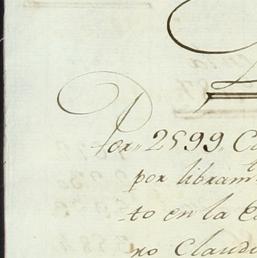 Por 2599 C
por libramto
to en la C
no Claudi